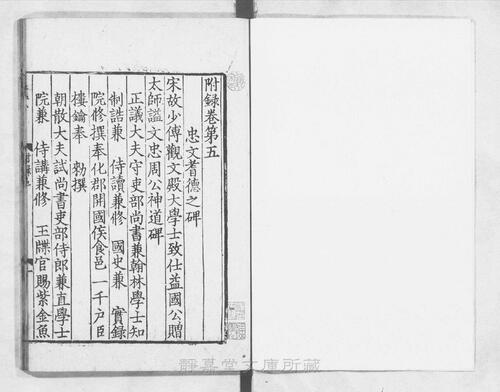 附錄卷第五
忠文耆德之碑
宋故少傅觀文殿大學士致仕益國公贈
太師諡文忠周公神道碑
正議大夫守吏部尚書兼翰林學士知
制誥兼 侍讀兼修 國史兼 實録
院修撰奉化郡開國侯食邑一千户臣
樓鑰奉 勑撰
朝散大夫試尚書吏部侍郎兼直學士
院兼 侍講兼修 玉牒官賜紫金魚
靜嘉堂文庫所藏